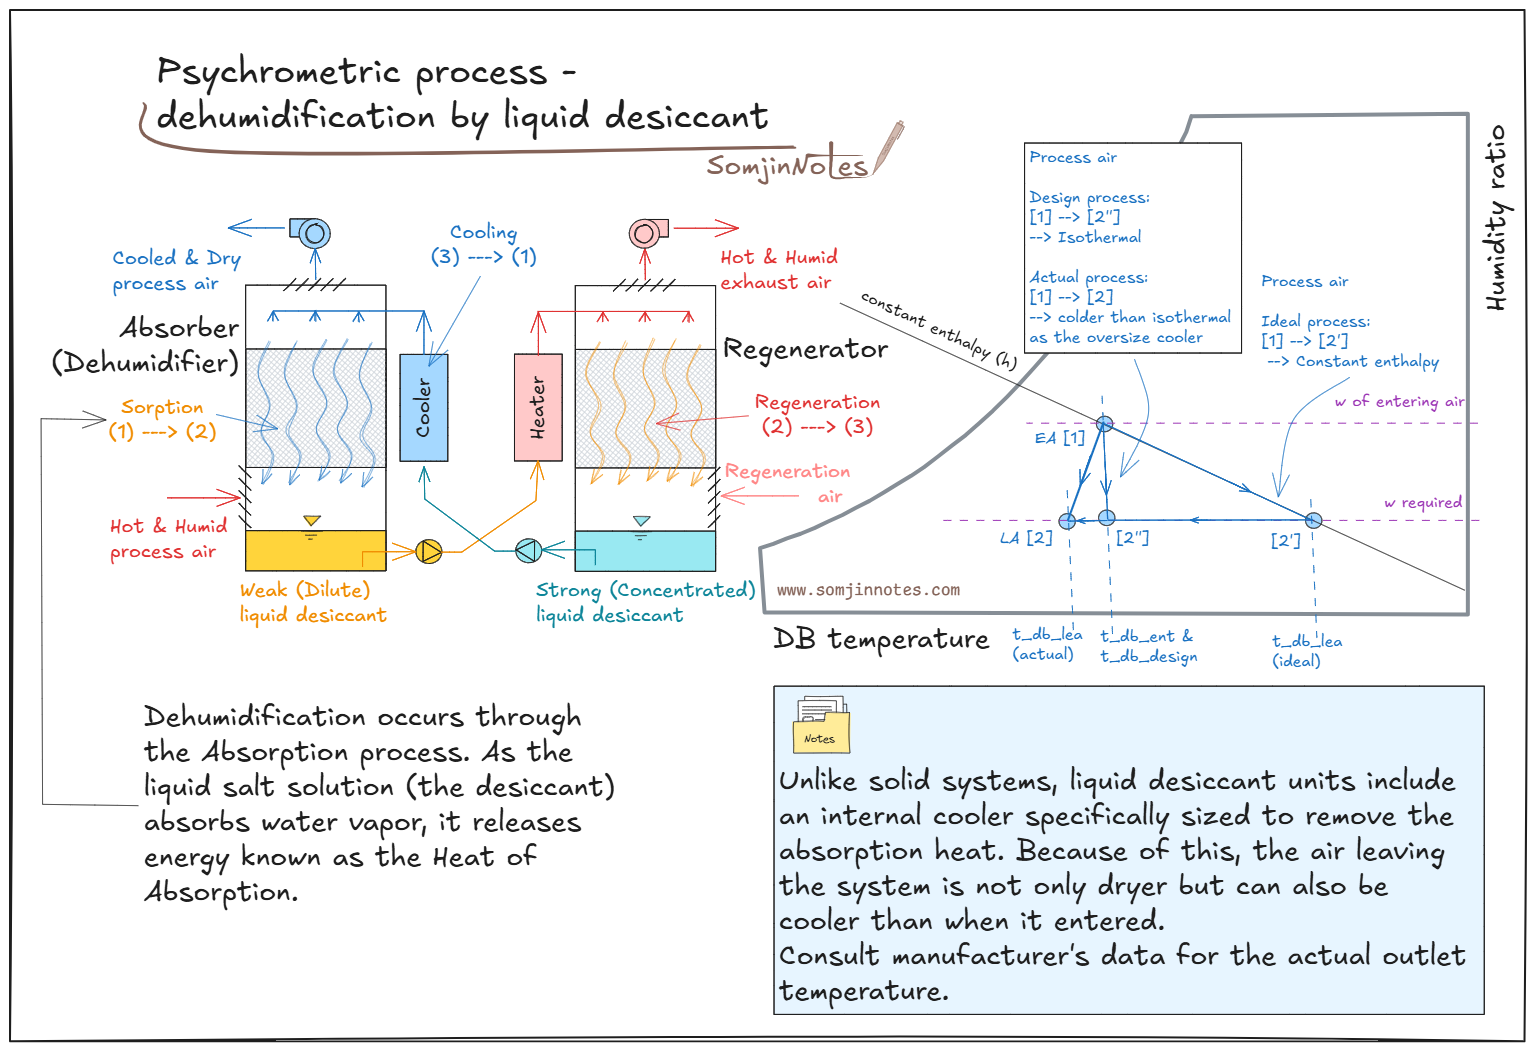 Psychrometric process -
dehumidification by liquid desiccant
SomjinNotes
Cooled & Dry
process air
Cooling
(3) ---> (1)
Hot & Humid
exhaust air
Absorber
(Dehumidifier)
Regenerator
Cooler
Heater
Sorption
(1) ---> (2)
Regeneration
(2) ---> (3)
Regeneration
air
Hot & Humid
process air
Weak (Dilute)
liquid desiccant
Strong (Concentrated)
liquid desiccant
Process air
Design process:
[1] --> [2"]
--> Isothermal
Actual process:
[1] --> [2]
--> colder than isothermal
as the oversize cooler
Process air
Ideal process:
[1] --> [2']
--> Constant enthalpy
Humidity ratio
constant enthalpy (h)
w of entering air
EA [1]
w required
LA [2]
[2"]
[2']
www.somjinnotes.com
DB temperature
t_db_lea
(actual)
t_db_ent &
t_db_design
t_db_lea
(ideal)
Dehumidification occurs through
the Absorption process. As the
liquid salt solution (the desiccant)
absorbs water vapor, it releases
energy known as the Heat of
Absorption.
Notes
Unlike solid systems, liquid desiccant units include
an internal cooler specifically sized to remove the
absorption heat. Because of this, the air leaving
the system is not only dryer but can also be
cooler than when it entered.
Consult manufacturer's data for the actual outlet
temperature.